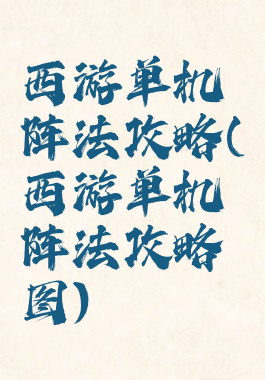 西游单机
阵法攻略(
西游单机
阵法攻略
图)